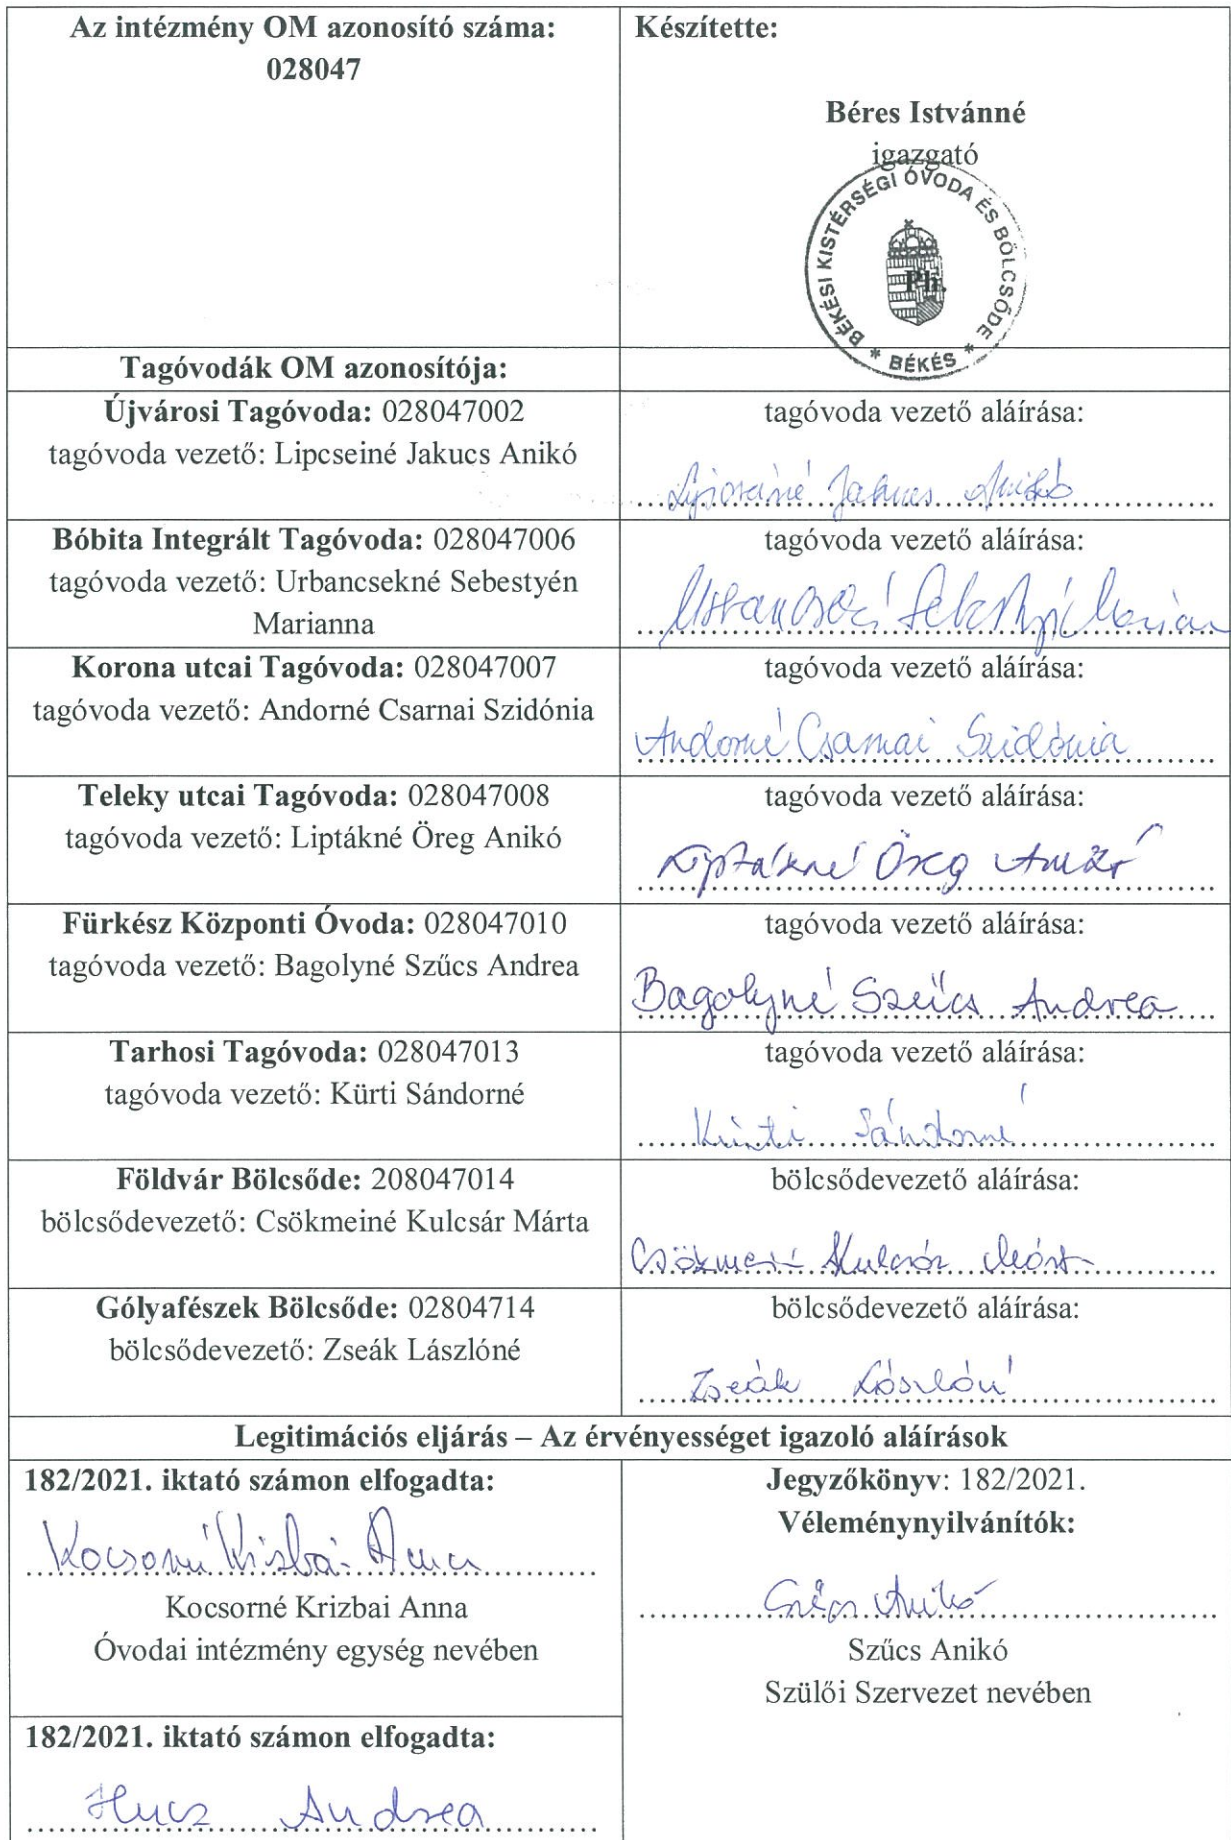 Az intézmény OM azonosító száma:
028047
Készítette:
Béres Istvánné
igazgató
BÉKÉSI KISTÉRSÉGI ÓVODA ÉS BÖLCSŐDE
* BÉKÉS *
Ph.
Tagóvodák OM azonosítója:
Újvárosi Tagóvoda: 028047002
tagóvoda vezető: Lipcseiné Jakucs Anikó
tagóvoda vezető aláírása:
Lipcseiné Jakucs Anikó
Bóbita Integrált Tagóvoda: 028047006
tagóvoda vezető: Urbancsekné Sebestyén
Marianna
tagóvoda vezető aláírása:
Korona utcai Tagóvoda: 028047007
tagóvoda vezető: Andorné Csarnai Szidónia
tagóvoda vezető aláírása:
Andorné Csarnai Szidónia
Teleky utcai Tagóvoda: 028047008
tagóvoda vezető: Liptákné Öreg Anikó
tagóvoda vezető aláírása:
Liptákné Öreg Anikó
Fürkész Központi Óvoda: 028047010
tagóvoda vezető: Bagolyné Szűcs Andrea
tagóvoda vezető aláírása:
Bagolyné Szűcs Andrea
Tarhosi Tagóvoda: 028047013
tagóvoda vezető: Kürti Sándorné
tagóvoda vezető aláírása:
Kürti Sándorné
Földvár Bölcsőde: 208047014
bölcsődevezető: Csökmeiné Kulcsár Márta
bölcsődevezető aláírása:
Csökmeiné Kulcsár Márta
Gólyafészek Bölcsőde: 02804714
bölcsődevezető: Zseák Lászlóné
bölcsődevezető aláírása:
Zseák Lászlóné
Legitimációs eljárás – Az érvényességet igazoló aláírások
182/2021. iktató számon elfogadta:
Kocsorné Krizbai Anna
Kocsorné Krizbai Anna
Óvodai intézmény egység nevében
Jegyzőkönyv: 182/2021.
Véleménynyilvánítók:
Szűcs Anikó
Szűcs Anikó
Szülői Szervezet nevében
182/2021. iktató számon elfogadta:
Hucz Andrea